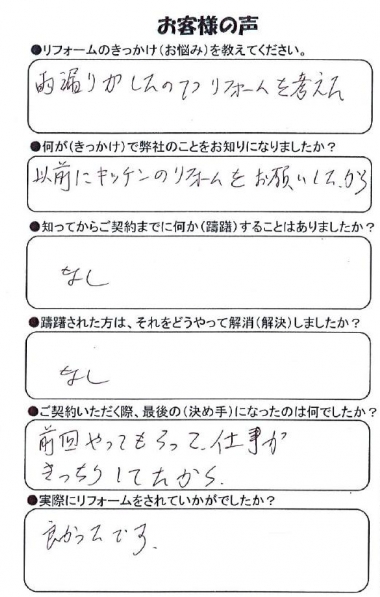 お客様の声
●リフォームのきっかけ(お悩み)を教えてください。
雨漏りがしたのでリフォームを考えた
●何が(きっかけ)で弊社のことをお知りになりましたか?
以前にキッチンのリフォームをお願いした から
●知ってからご契約までに何か(躊躇)することはありましたか?
なし
●躊躇された方は、それをどうやって解消(解決)しましたか?
なし
●ご契約いただく際、最後の(決め手)になったのは何でしたか?
前回やってもらって、仕事が
きっちりしてたから、
●実際にリフォームをされていかがでしたか?
良かったです、